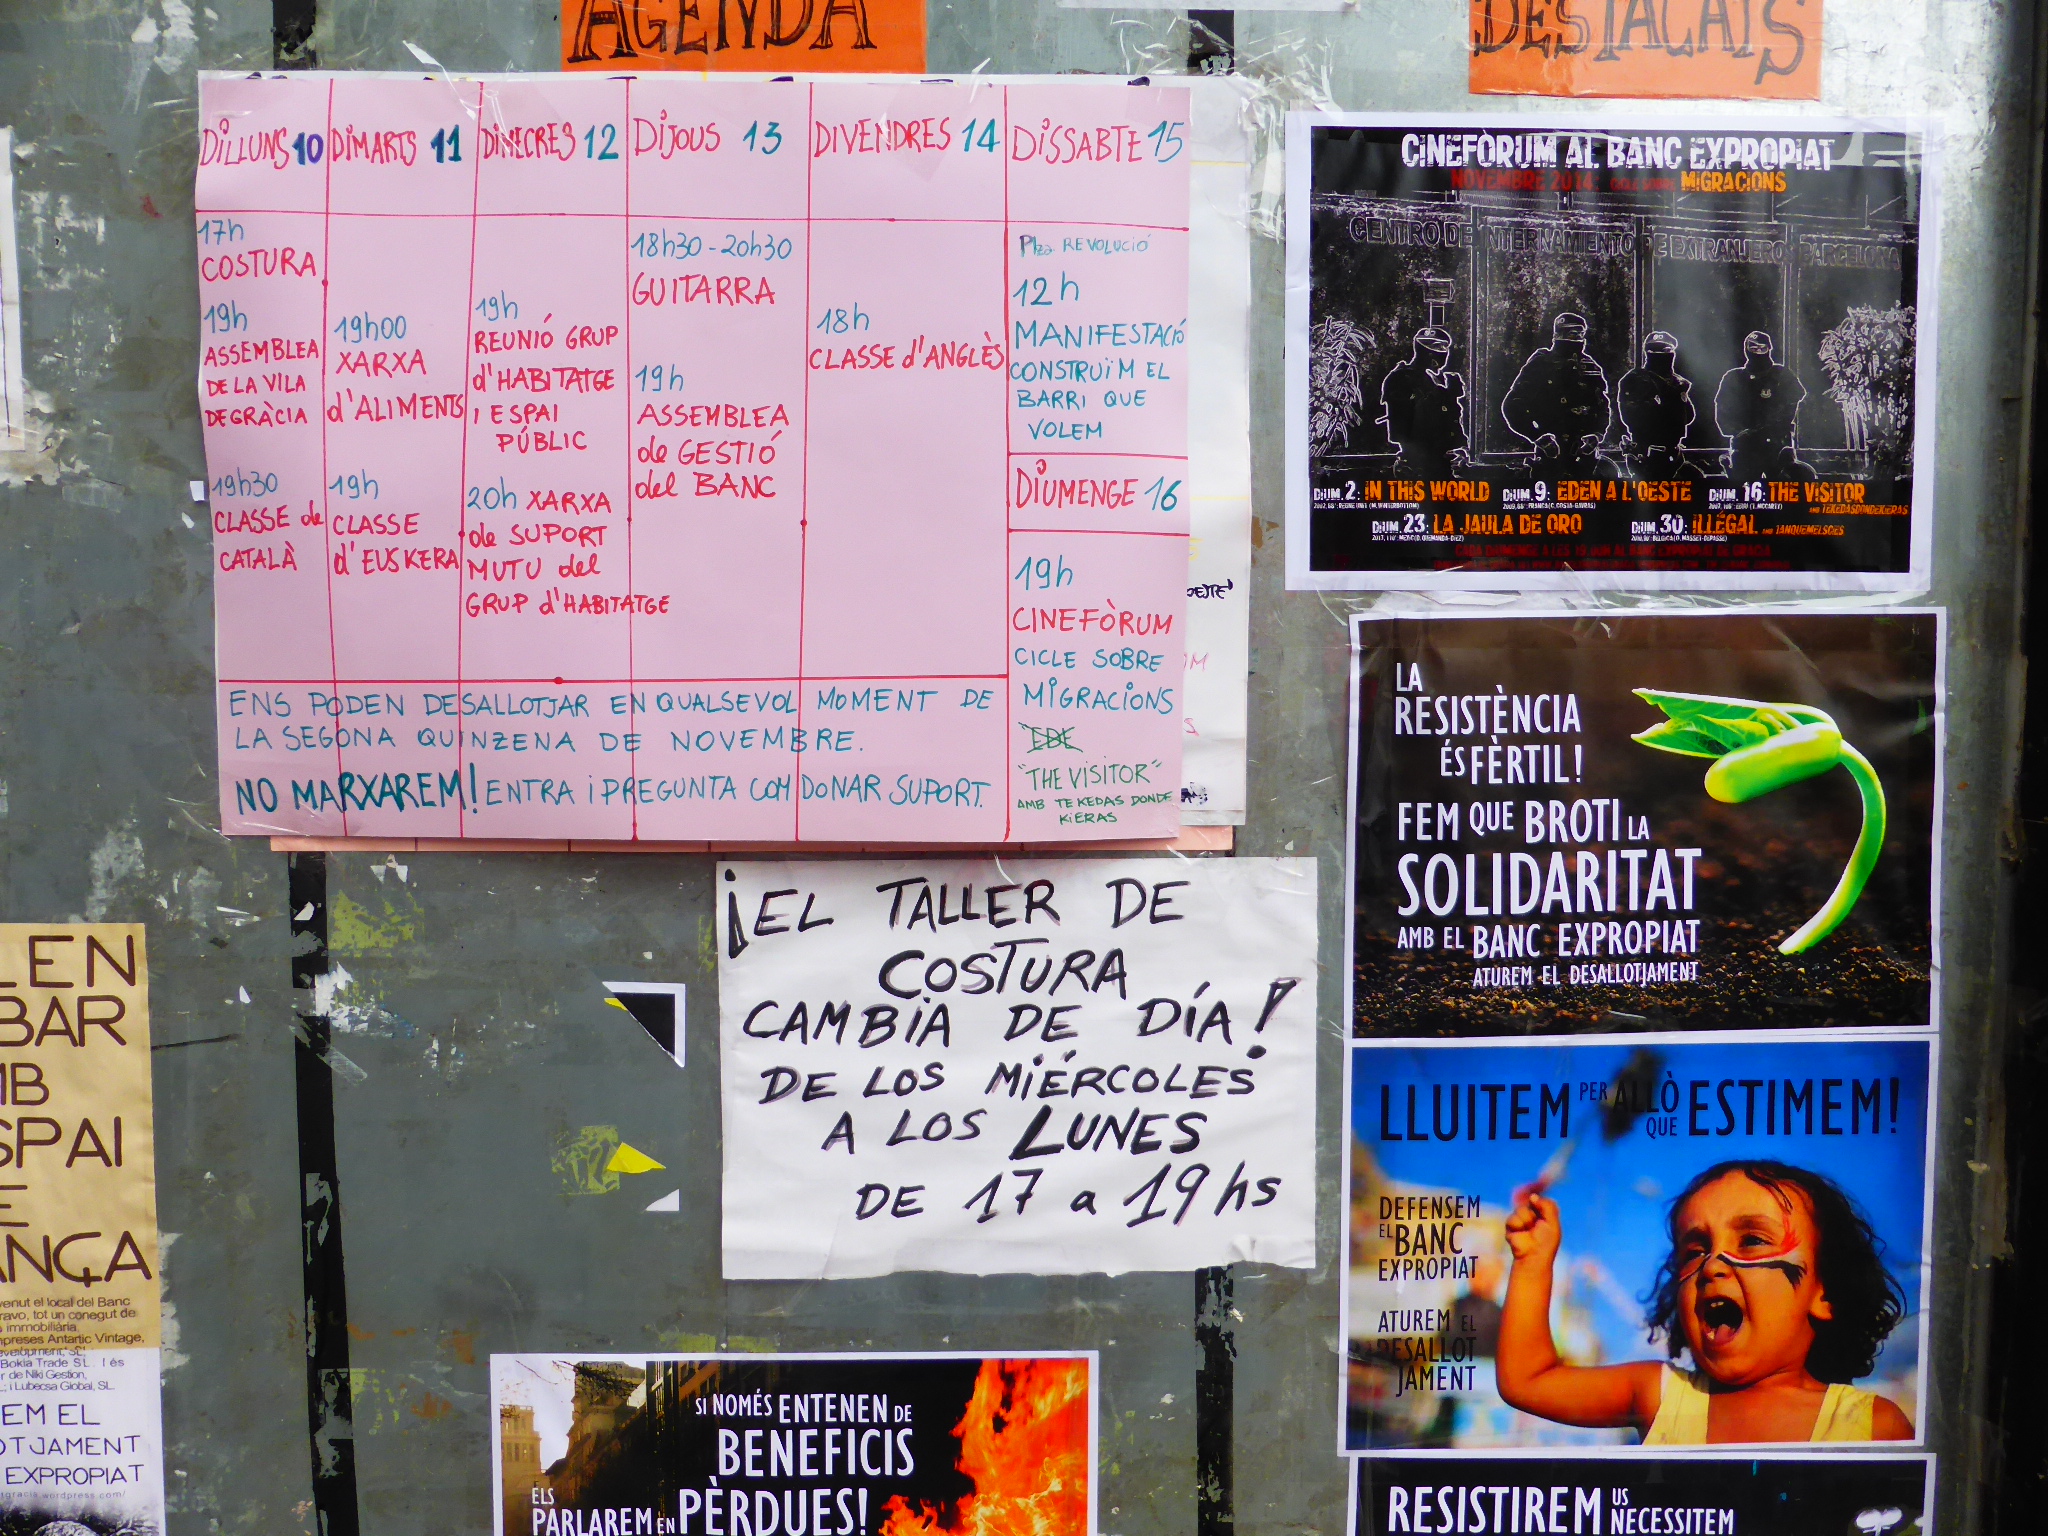 AGENDA
DESTACATS
DILLUNS 10
DIMARTS 11
DIMECRES 12
DIJOUS 13
DIVENDRES 14
DISSABTE 15
17h
COSTURA
19h
ASSEMBLEA
DE LA VILA
DE GRÀCIA
19h30
CLASSE de
CATALÀ
19h00
XARXA
d'ALIMENTS
19h
CLASSE
d'EUSKERA
19h
REUNIÓ GRUP
d'HABITATGE
i ESPAI
PÚBLIC
20h XARXA
de SUPORT
MUTU del
GRUP d'HABITATGE
18h30-20h30
GUITARRA
19h
ASSEMBLEA
de GESTIÓ
del BANC
18h
CLASSE d'ANGLÈS
Plza REVOLUCIÓ
12h
MANIFESTACIÓ
CONSTRUÏM EL
BARRI QUE
VOLEM
DIUMENGE 16
19h
CINEFÒRUM
CICLE SOBRE
MIGRACIONS
"EDE
"THE VISITOR"
AMB TEKEDAS DONDE
KIERAS
ENS PODEN DESALLOTJAR EN QUALSEVOL MOMENT DE
LA SEGONA QUINZENA DE NOVEMBRE.
NO MARXAREM! ENTRA i PREGUNTA COM DONAR SUPORT.
¡EL TALLER DE
COSTURA
CAMBIA DE DÍA!
DE LOS MIÉRCOLES
A LOS LUNES
DE 17 a 19 hs
CINEFÒRUM AL BANC EXPROPIAT
NOVEMBRE 2014: CICLE SOBRE MIGRACIONS
CENTRO DE INTERNAMIENTO DE EXTRANJEROS BARCELONA
DIUM. 2: IN THIS WORLD DIUM. 9: EDEN A L'OESTE DIUM. 16: THE VISITOR
AMB TEKEDASDONDEKIERAS
DIUM. 23: LA JAULA DE ORO DIUM. 30: ILLÉGAL AMB TANQUEMELSCIES
LA
RESISTÈNCIA
ÉS FÈRTIL!
FEM QUE BROTI LA
SOLIDARITAT
AMB EL BANC EXPROPIAT
ATUREM EL DESALLOTJAMENT
LLUITEM PER ALLÒ QUE ESTIMEM!
DEFENSEM
EL BANC
EXPROPIAT
ATUREM EL
DESALLOT
JAMENT
RESISTIREM US NECESSITEM
SI NOMÉS ENTENEN DE
BENEFICIS
ELS
PARLAREM EN PÈRDUES!
LEN
BAR
MB
SPAI
E
ANÇA
venut el local del Banc
ravo, tot un conegut de
immobiliària.
mpreses Antartic Vintage,
evelopment, SL,
Bokia Trade SL. I és
r de Niki Gestion,
L; i Lubecsa Global, SL.
EM EL
OTJAMENT
EXPROPIAT
tgracia.wordpress.com/